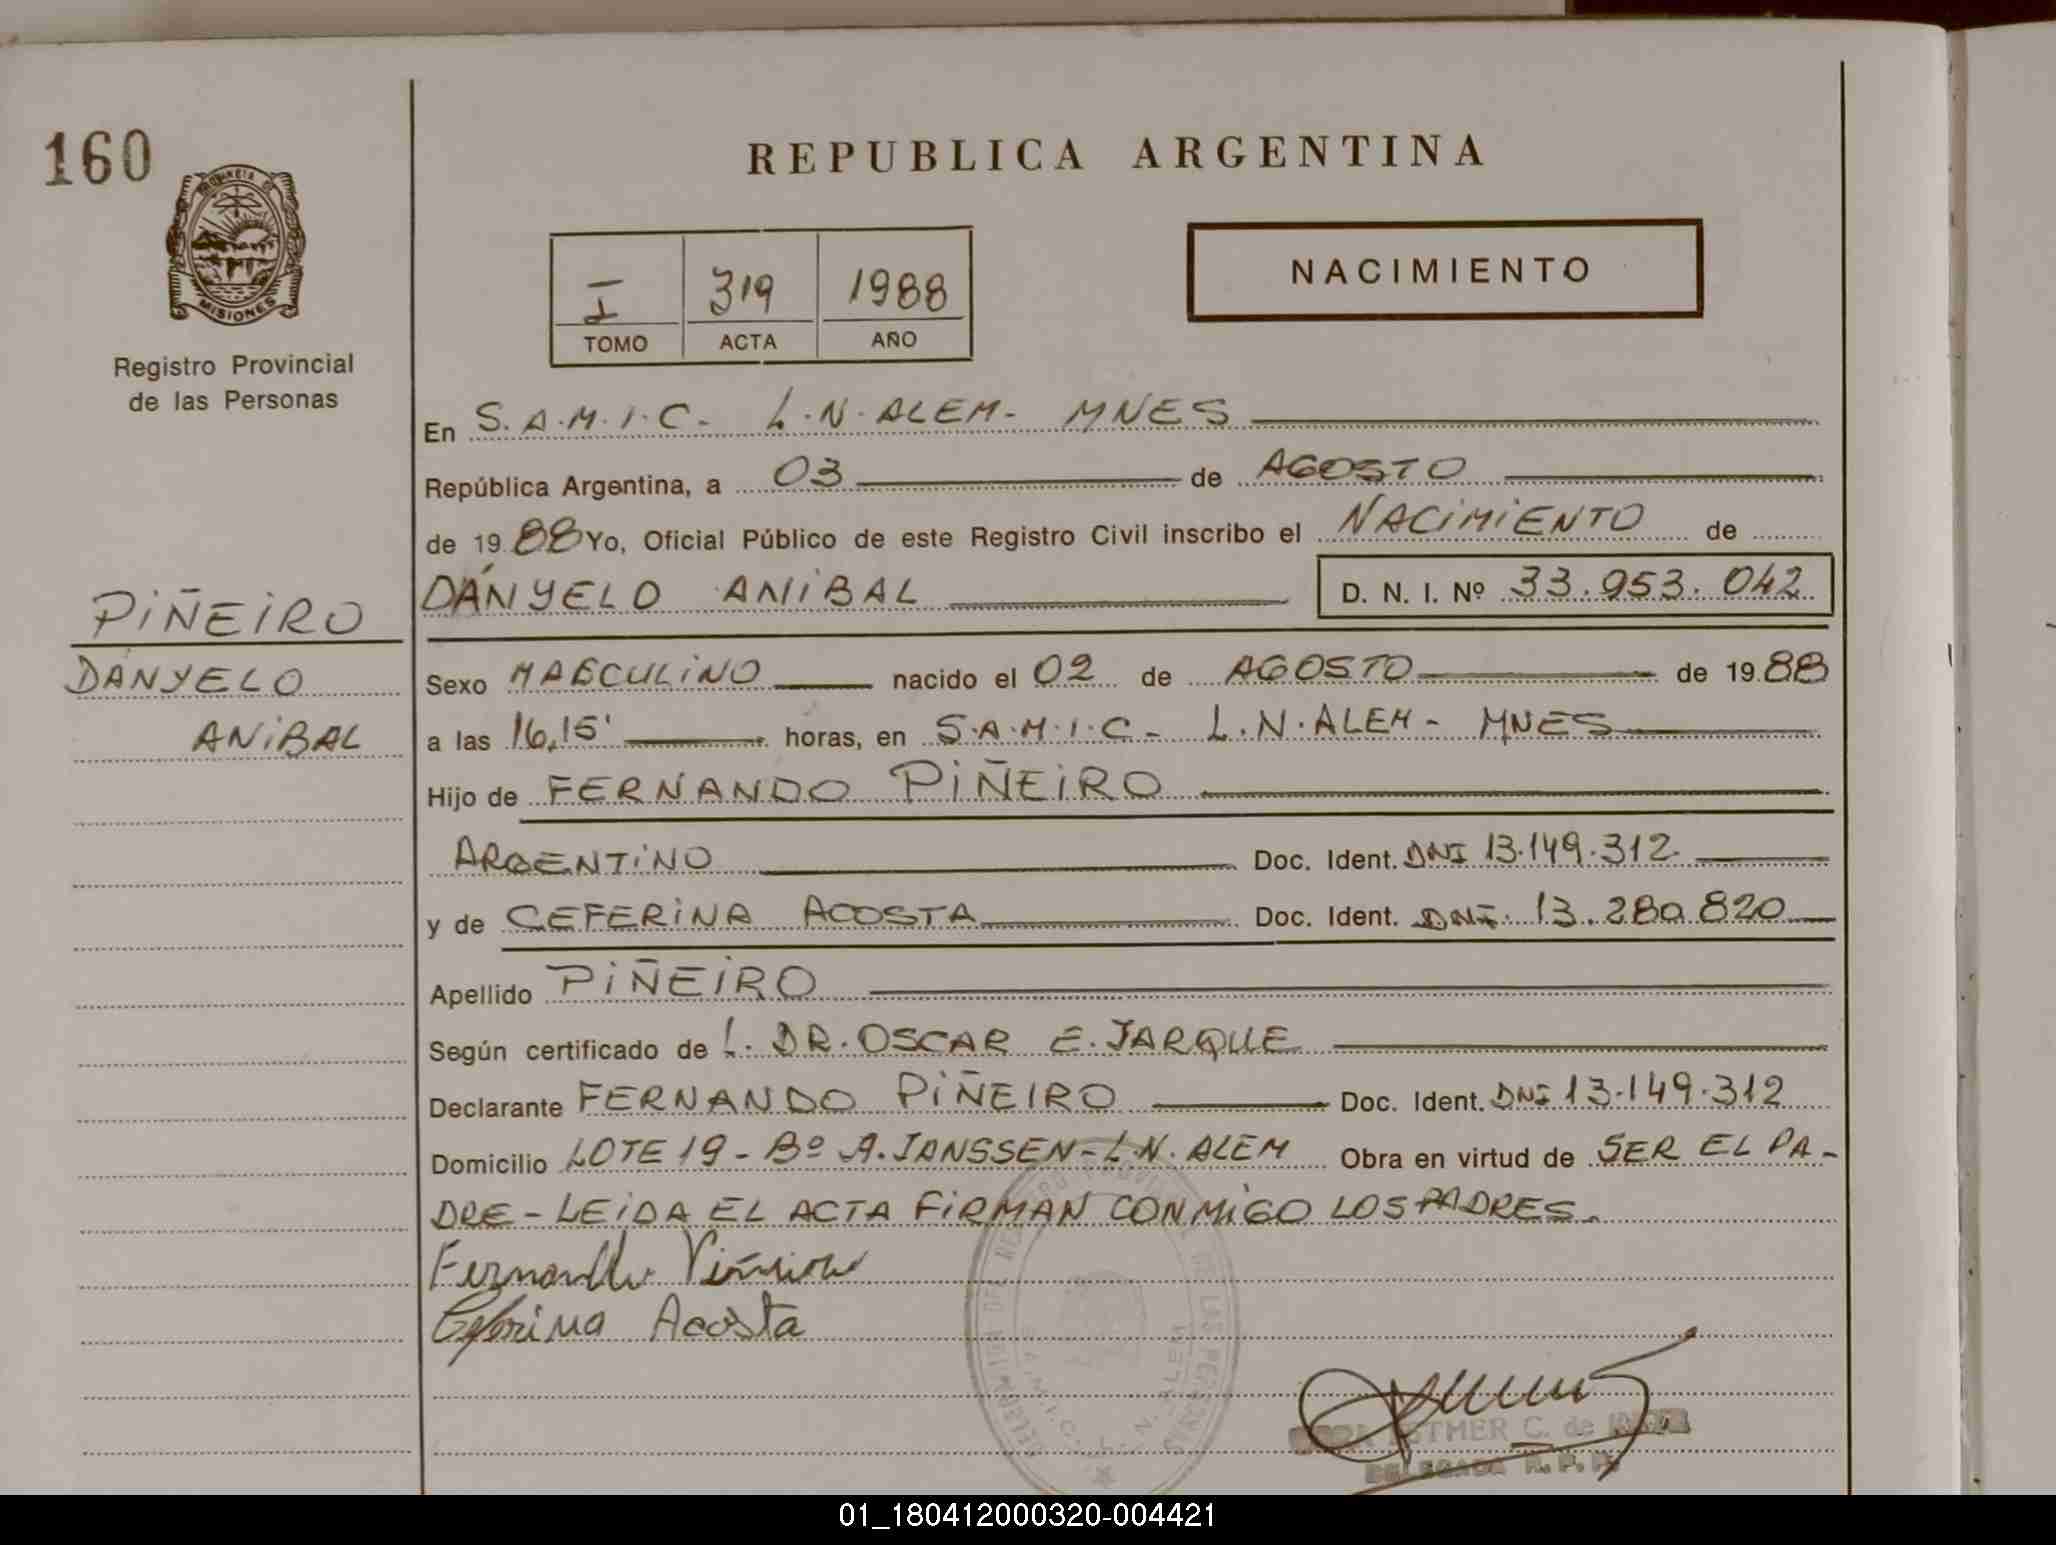 160
REPUBLICA ARGENTINA
PROVINCIA DE
MISIONES
Registro Provincial
de las Personas
I 319 1988
TOMO ACTA AÑO
NACIMIENTO
En S.A.M.I.C- L.N.ALEM- MNES
República Argentina, a 03 de AGOSTO
de 1988 Yo, Oficial Público de este Registro Civil inscribo el NACIMIENTO de
DÁNYELO ANIBAL D. N. I. Nº 33.953.042
PIÑEIRO
DANYELO
ANIBAL
Sexo MASCULINO nacido el 02 de AGOSTO de 1988
a las 16,15' horas, en S.A.M.I.C- L.N.ALEM- MNES
Hijo de FERNANDO PIÑEIRO
ARGENTINO Doc. Ident. DNI 13.149.312
y de CEFERINA ACOSTA Doc. Ident. DNI. 13.280.820
Apellido PIÑEIRO
Según certificado de L. DR. OSCAR E. JARQUE
Declarante FERNANDO PIÑEIRO Doc. Ident. DNI 13.149.312
Domicilio LOTE 19 - Bº A. JANSSEN - L.N. ALEM Obra en virtud de SER EL PA-
DRE - LEIDA EL ACTA FIRMAN CONMIGO LOS PADRES.
Fernando Piñeiro
Ceferina Acosta
S.A.M.I.C. L.N. ALEM
ESTHER C. de
DELEGADA R. P. P.
01_180412000320-004421